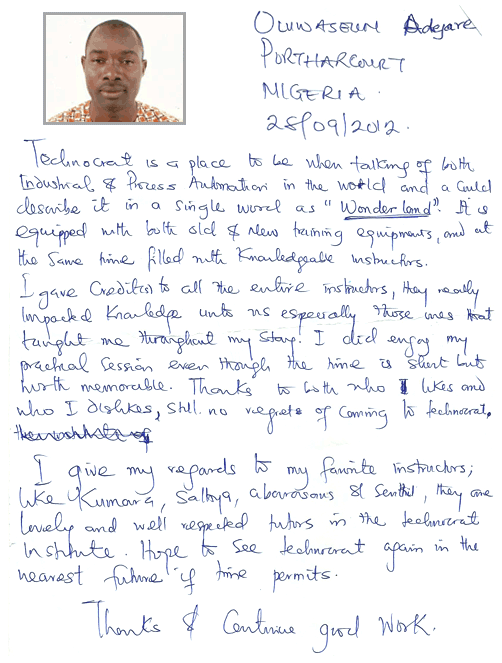 OLUWASEUN Adejare
PORTHARCOURT
NIGERIA.
28/09/2012.
Technocrat is a place to be when talking of both
Industrial & Process Automation in the world and a could
describe it in a single word as "Wonder land". It is
equipped with both old & New training equipments, and at
the same time filled with Knowledgeable instructors.
I gave Credit(s) to all the entire instructors, they really
impacted Knowledge unto us especially those ones that
taught me throughout my stay. I did enjoy my
practical Session even though the time is short but
worth memorable. Thanks to both who I likes and
who I dislikes, still no regrets of Coming to technocrat.
I give my regards to my favorite instructors;
like Kumara, Sathya, & Senthil, they are
lovely and well respected tutors in the technocrat
institute. Hope to See technocrat again in the
nearest future if time permits.
Thanks & Continue good Work.